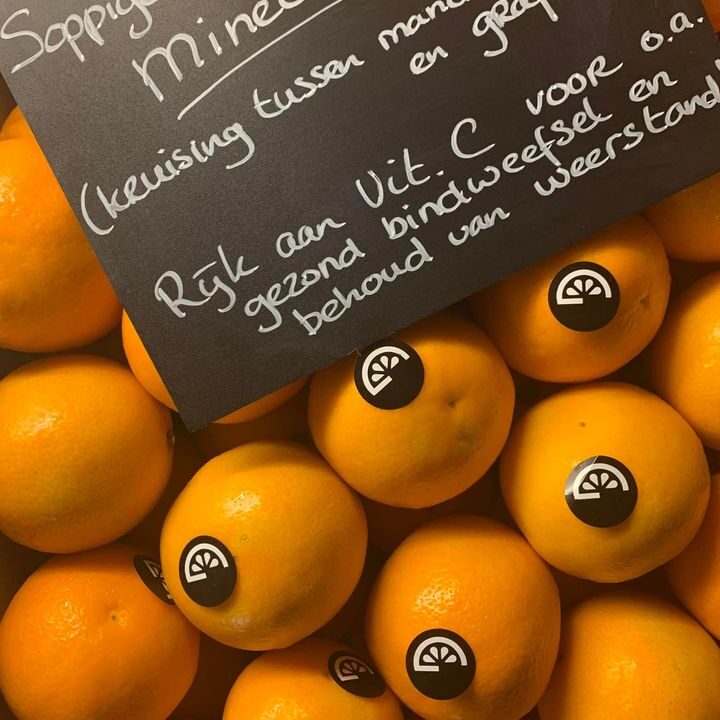 Soppig
Mine
(kruising tussen man
en gra
Rijk aan Vit. C voor o.a.
gezond bindweefsel en
behoud van weerstand